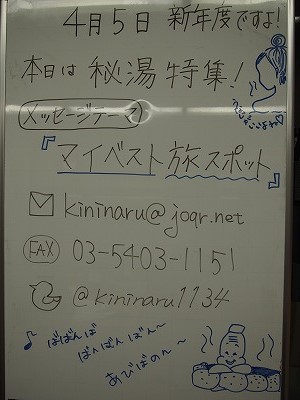 4月5日 新年度ですよ!
本日は 秘湯特集!
メッセージテーマ
『マイベスト旅スポット』
kininaru@joqr.net
FAX 03-5403-1151
@kininaru1134
♪ ばばんば
ばんばんばん〜
あびばのん〜